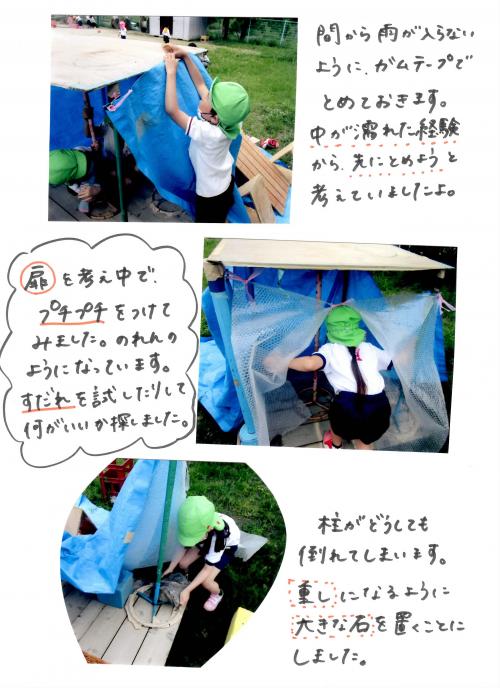 間から雨が入らない
ように、ガムテープで
とめておきます。
中が濡れた経験
から、先にとめようと
考えていましたよ。
扉を考え中で、
プチプチをつけて
みました。のれんの
ようになっています。
すだれを試したりして
何がいいか探しました。
柱がどうしても
倒れてしまいます。
重しになるように
大きな石を置くことに
しました。